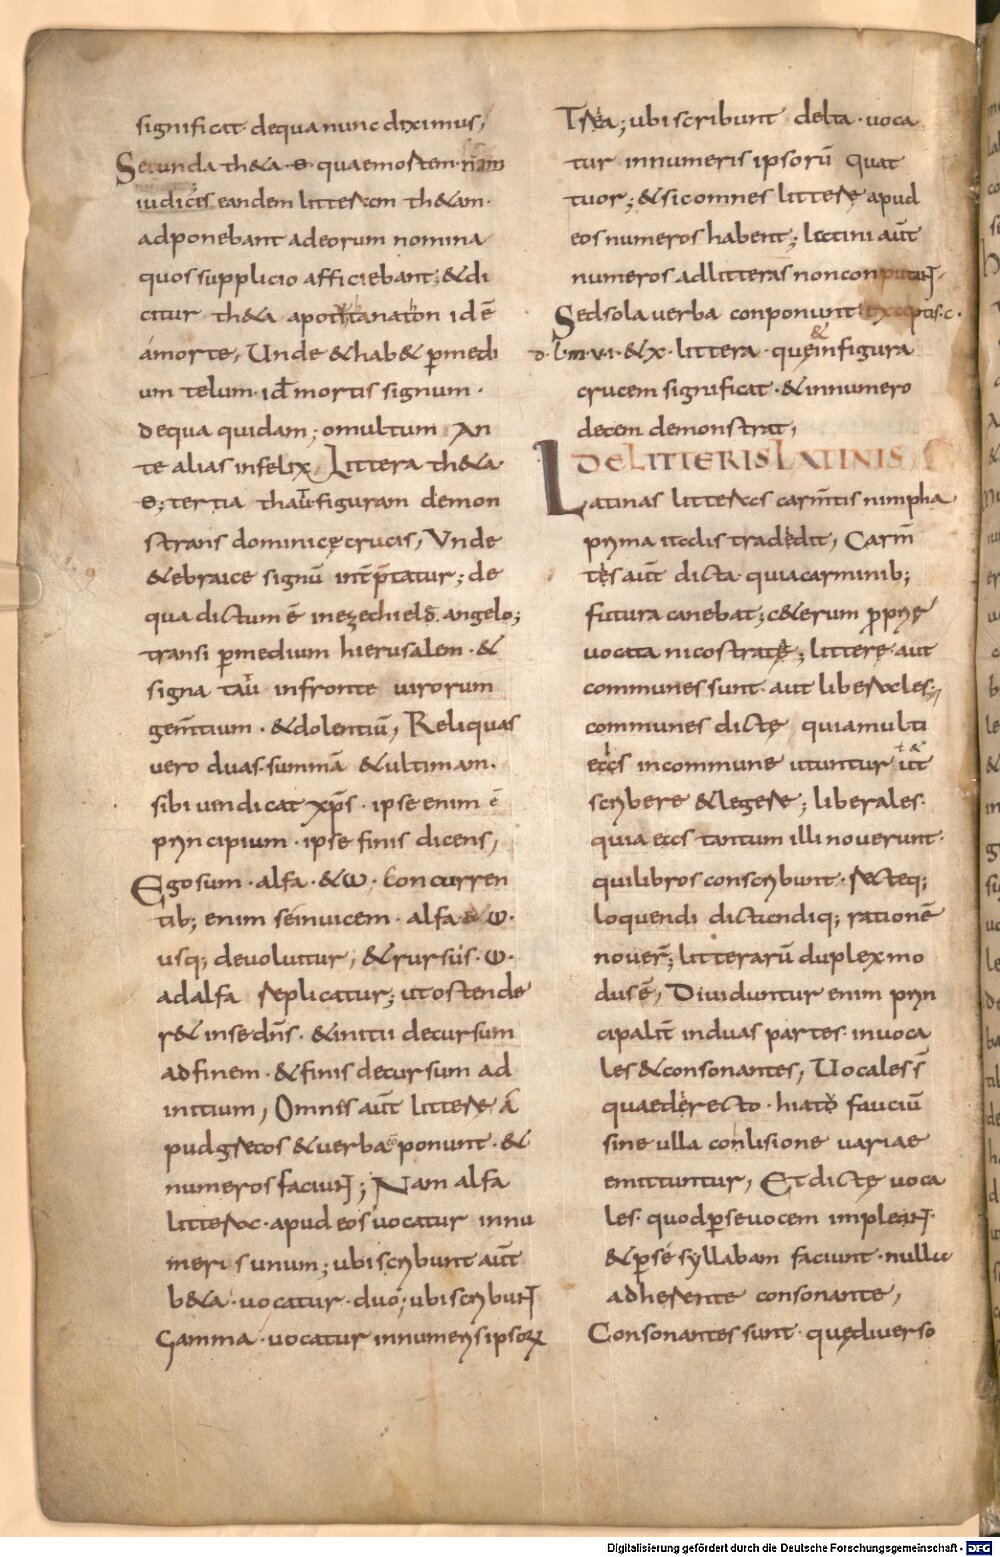 significat· dequa nunc diximus,
Secunda th&a· ɵ· quae mortem· nam
iudices eandem litteram th&am·
adponebant adeorum nomina
quos supplicio afficiebant; & di
citur th&a apotthanaton idē
amorte, Unde & hab& p̄medi
um telum· id̄ mortis signum·
dequa quidam; omultum an
te alias infelix, Littera th&a
ɵ; tertia thau figuram demon
strans dominicę crucis, Vnde
& ebraice signū int̄p̄tatur; de
qua dictum ē inezechiele angelo;
transi p̄medium hierusalem· &
signa tau infronte uirorum
gem̄tium· & dolentiū, Reliquas
uero duas summā & ultimam·
sibi uindicat xp̄s· ipse enim ē
principium· ipse finis dicens,
Ego sum· alfa· & ω· concurren
tib; enim seinuicem· alfa ad ω·
usq; deuoluitur, & rursus· ω·
ad alfa replicatur; ut ostende
r& inse dn̄s· & initii decursum
ad finem· & finis decursum ad
initium, Omnis aut̄ litterę a
pud grecos & uerba ponunt· &
numeros faciunt; Nam alfa
littera· apud eos uocatur innu
meris unum; ubi scribunt aut̄
b&a· uocatur· duo; ubi scribunt
Gamma· uocatur innumeris ipsorꝝ
Trea; ubi scribunt delta· uoca
tur innumeris ipsorū quat
tuor; & sic omnes litterę apud
eos numeros habent; Latini aut̄
numeros adlitteras non conputant·
Sed sola uerba conponunt exceptis· c·
d· l· m· v· i· & x· littera· quę & infigura
crucem significat· & innumero
decem demonstrat,
DE LITTERIS LATINIS
Latinas litteras carm̄tis nimpha
prima italis tradedit, Carm̄
tes aut̄ dicta· quia carminib;
futura canebat; c&erum p̄prię
uocata nicostratę; litterę aut
communes sunt· aut liberales;
communes dictę quia multi
eas incommune utuntur ut
scribere & legere; liberales·
quia eas tantum illi nouerunt·
qui libros conscribunt· recteq;
loquendi dictandiq; rationē
nouer̄; litterarū duplex mo
dus ē, Diuiduntur enim prin
cipalit̄ induas partes· inuoca
les & consonantes, Uocales s̄
quae derecto· hiato fauciū
sine ulla conlisione uariae
emittuntur, Et dictę uoca
les· quod p̄se uocem impleant·
& p̄se syllabam faciunt· nulla
adherente consonante,
Consonantes sunt· quę diuerso
Digitalisierung gefördert durch die Deutsche Forschungsgemeinschaft - DFG